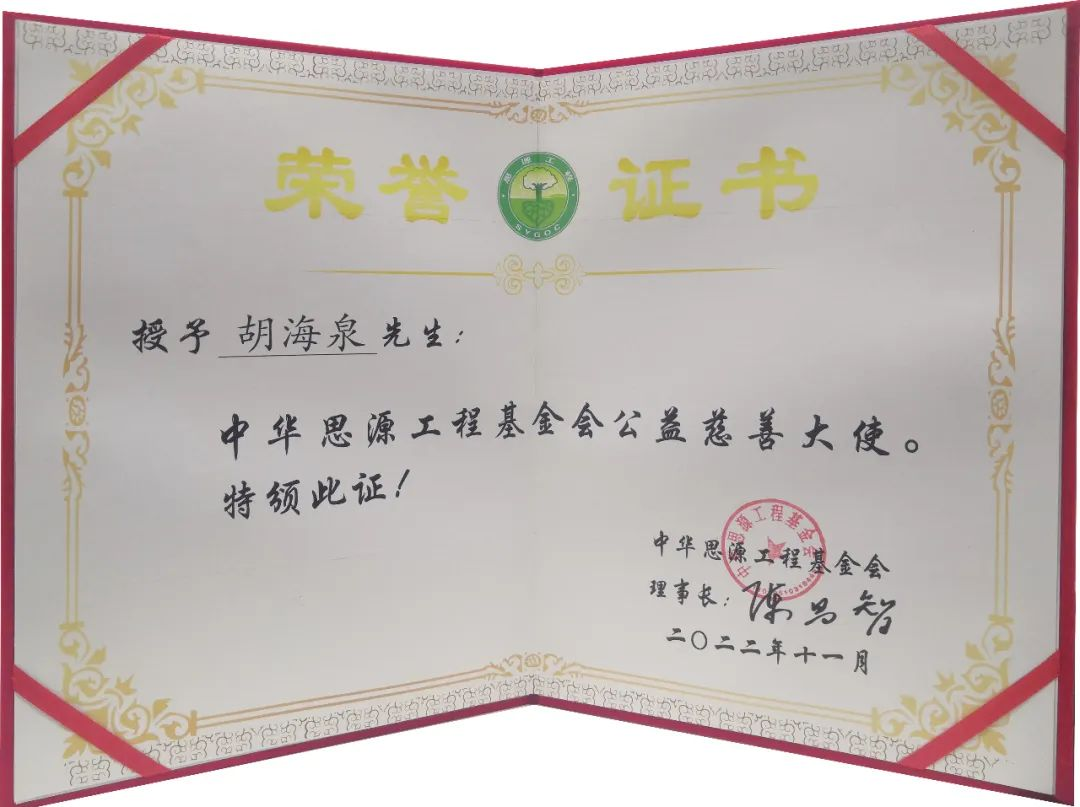 荣誉证书
思源工程
SYGOC
授予 胡海泉 先生:
中华思源工程基金会公益慈善大使。
特颁此证!
中华思源工程基金会
中华思源工程基金会
理事长:陈昌智
二〇二二年十一月